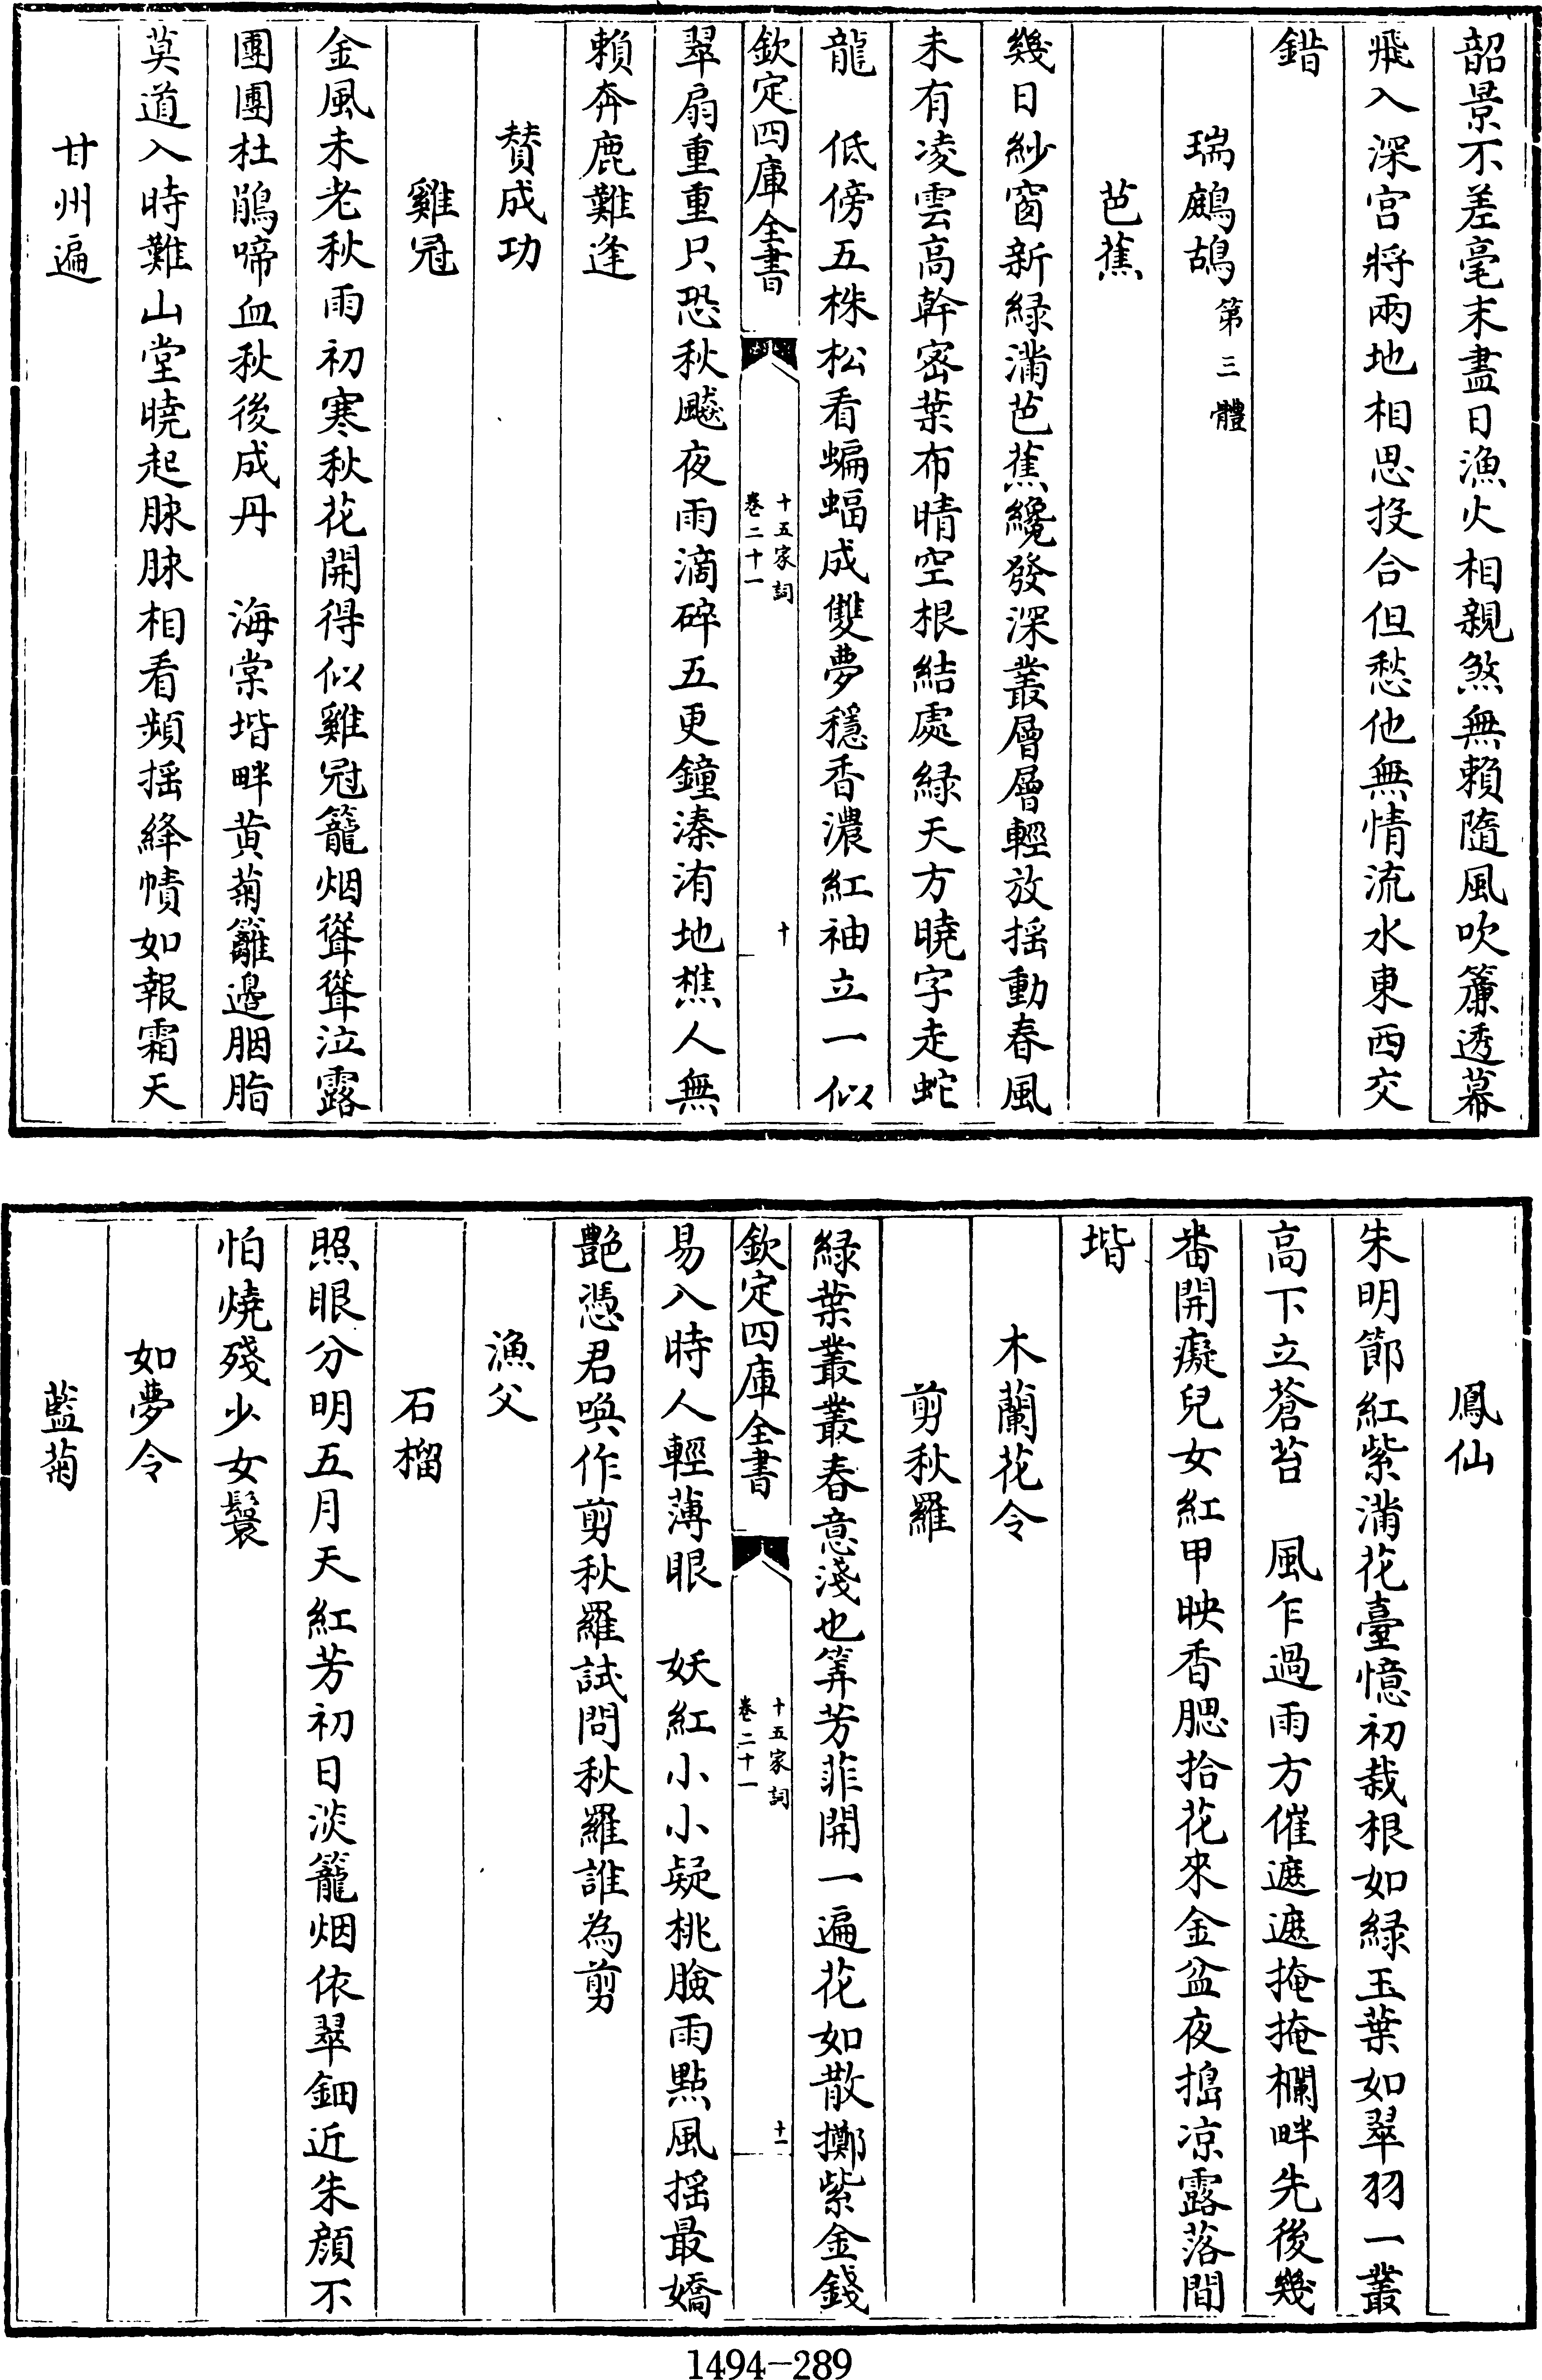 韶景不差毫末盡日漁火相親煞無賴隨風吹簾透幕
飛入深宮將兩地相思投合但愁他無情流水東西交
錯
瑞鷓鴣第三體
芭蕉
幾日紗窗新緑滿芭蕉纔發深叢層層輕放揺動春風
未有凌雲高幹宻葉布晴空根結處緑天方曉字走蛇
龍　低傍五株松看蝙蝠成雙夢穩香濃紅袖立一似
欽定四庫全書
十五家詞
卷二十一
十
翠扇重重只恐秋飈夜雨滴碎五更鐘溱洧地樵人無
頼奔鹿難逢
賛成功
雞冠
金風未老秋雨初寒秋花開得似雞冠籠烟聳聳泣露
團團杜鵑啼血秋後成丹　海棠堦畔黄菊籬邉胭脂
莫道入時難山堂曉起脉脉相看頻揺絳幘如報霜天
甘州遍
鳳仙
朱明節紅紫滿花臺憶初栽根如緑玉葉如翠羽一叢
高下立蒼苔　風乍過雨方催遮遮掩掩欄畔先後幾
番開癡兒女紅甲映香腮拾花來金盆夜搗凉露落間
堦
木蘭花令
剪秋羅
緑葉叢叢春意淺也筭芳菲開一遍花如散擲紫金錢
欽定四庫全書
十五家詞
卷二十一
十一
易入時人輕薄眼　妖紅小小疑桃臉雨點風揺最嬌
艷憑君喚作剪秋羅試問秋羅誰為剪
漁父
石榴
照眼分明五月天紅芳初日淡籠烟依翠鈿近朱顔不
怕燒殘少女鬟
如夢令
藍菊
1494-289